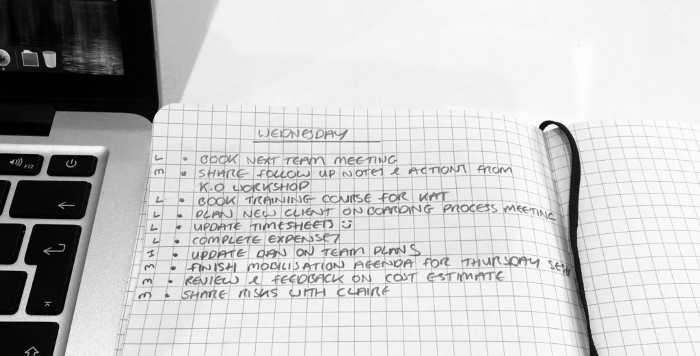 F12
WEDNESDAY
L • BOOK NEXT TEAM MEETING
M • SHARE FOLLOW UP NOTES & ACTIONS FROM
K.O WORKSHOP
L • BOOK TRAINING COURSE FOR KAT
L • PLAN NEW CLIENT ONBOARDING PROCESS MEETING
L • UPDATE TIMESHEETS
L • COMPLETE EXPENSES
H • UPDATE DAN ON TEAM PLANS
M • FINISH MOBILISATION AGENDA FOR THURSDAY
M • REVIEW & FEEDBACK ON COST ESTIMATE
M • SHARE RISKS WITH CLAIRE